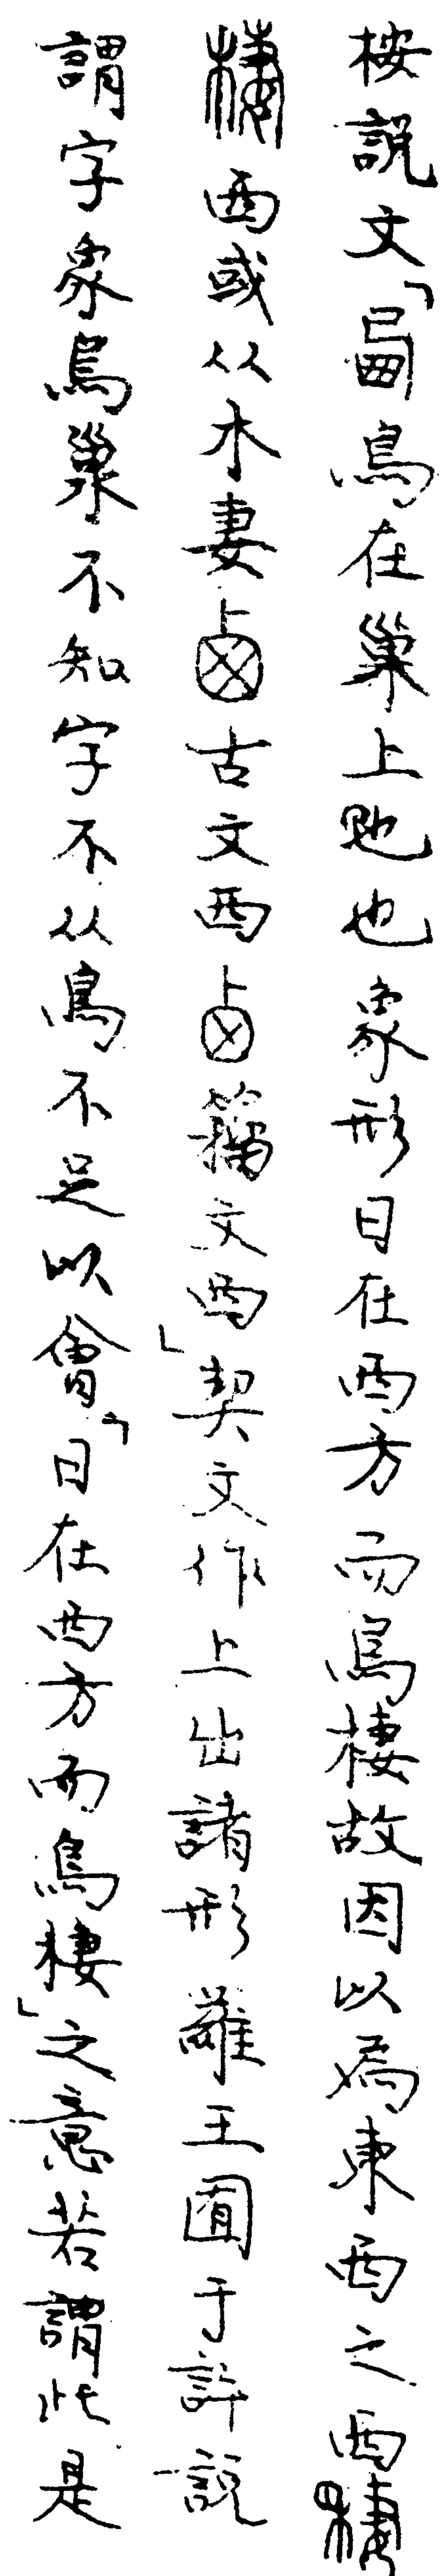 桉說文「㢴鳥在巢上皃也象形日在西方而鳥棲故因以為東西之西
棲西或从木妻卥古文西卤籀文西」契文作上出諸形羅王囿于許說
謂字象鳥巢不知字不从鳥不足以會「日在西方而鳥棲」之意若謂此是